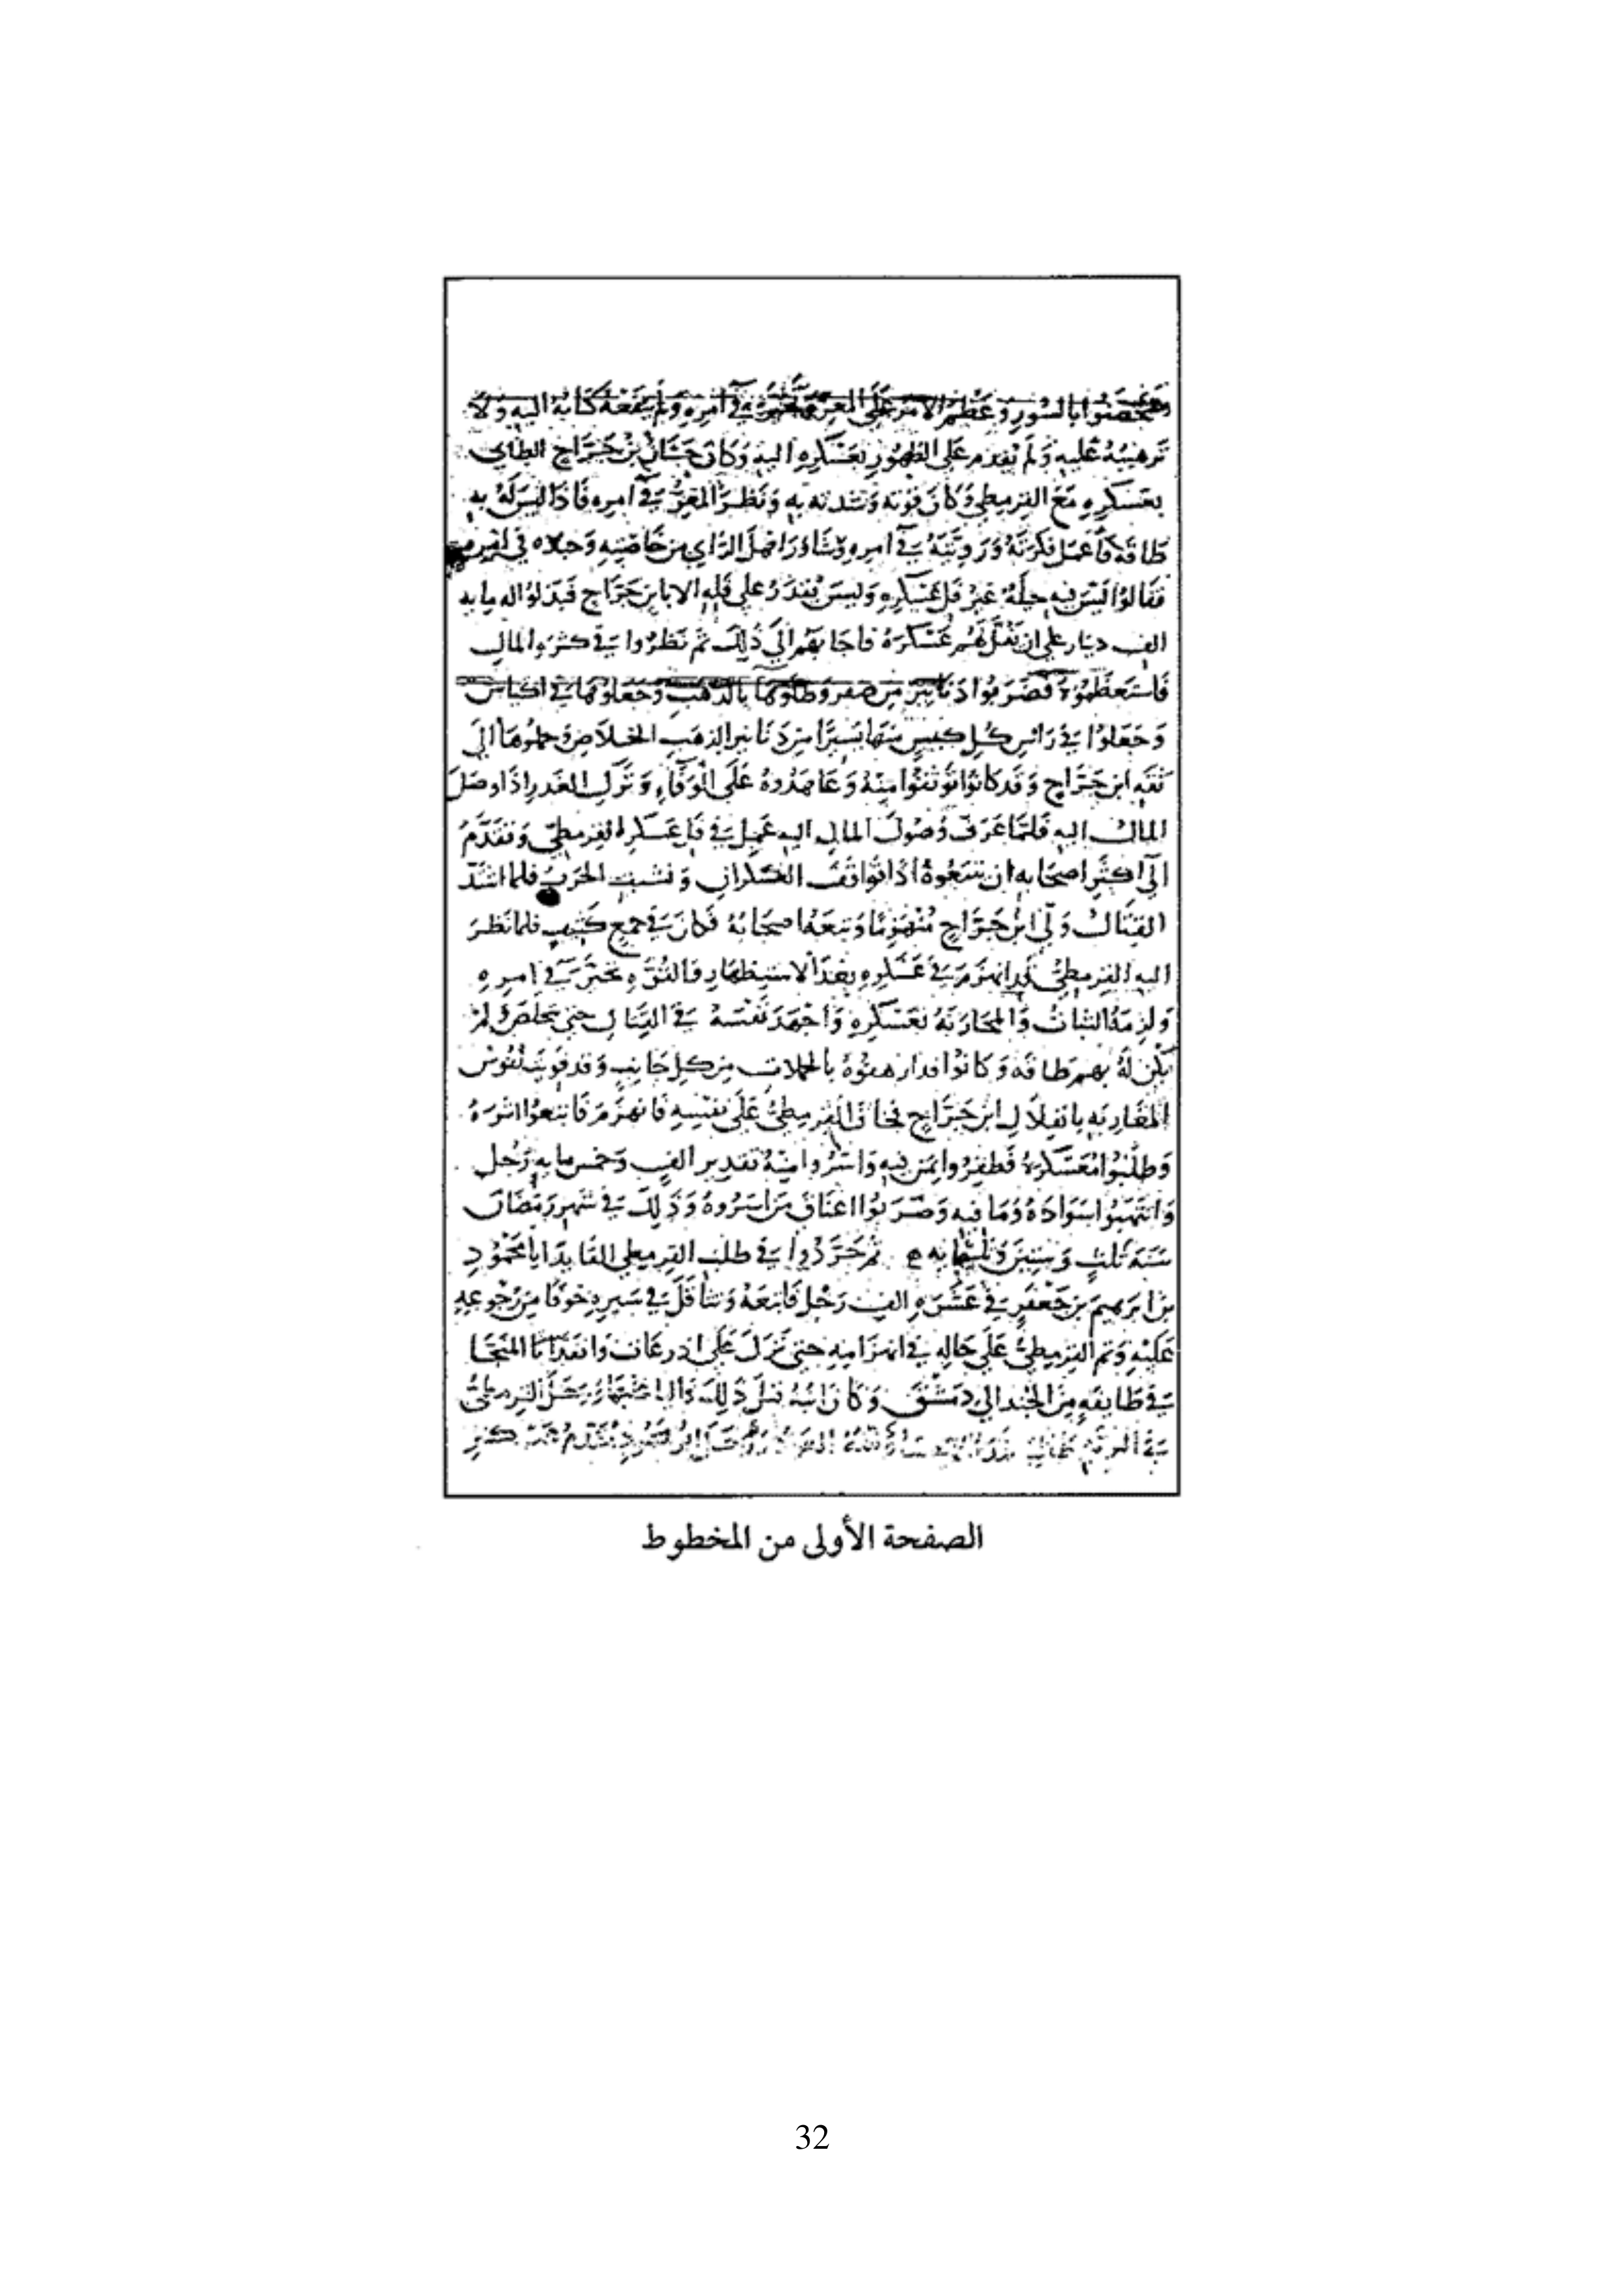 وتحصنوا بالسور وعظم الامر على المعز وتحير في امره ولم ينفعه كتابه اليه ولا
ترهيبه عليه ولم يقدم على الظهور بعسكره اليه وكان حسان بن جراح الطاي
بعسكره مع القرمطي وكان قوته وشدته به ونظر المعز في امره فاذا ليس له به
طاقة فاعمل فكرته ورويته في امره وشاور اهل الراي من خاصته وجلاه في
فقالوا ليس فيه حيلة غير فل عسكره وليس يقدر على فله الا بابن جراح فبذلوا له مايه
الف دينار على ان يفل لهم عسكره فاجابهم الى ذلك ثم نظروا في كثرة المال
فاستعظموه فضربوا دنانير من صفر وطلوها بالذهب وجعلوها في اكياس
وجعلوا في راس كل كيس منها يسيرا من دنانير الذهب الخلاص وحملوها الى
ثقه ابن جراح وقد كانوا توثقوا منه وعاهدوه على الوفاء وترك الغدر اذا وصل
المال اليه فلما عرف وصول المال اليه عمل في فل عسكر القرمطي وتقدم
الى اكثر اصحابه ان يتبعوه اذا تواقف العسكران ونشبت الحرب فلما اشتد
القتال ولى ابن جراح منهزما وتبعه اصحابه فكان في جمع كثيف فلما نظر
اليه القرمطي قد انهزم في عسكره بعد الاستظهار والقوه تحير في امره
ولزمه الثبات والمحاربة بعسكره واجهد نفسه في القتال حتى يتخلص ولم
يكن له بهم طاقه وكانوا قد ارهقوه بالحملات من كل جانب وقد قويت نفوس
المغاربه بانفلال ابن جراح فخاف القرمطي على نفسه فانهزم فاتبعوا اثره
وطلبوا معسكره فظفروا بمن فيه واسروا منه تقدير الف وخمس مايه رجل
وانتهبوا سواده وما فيه وضربوا اعناق من اسروه وذلك في شهر رمضان
سنة ثلث وستين وثلثمايه ثم جردوا في طلب القرمطي القايد ابا محمود
بن ابرهيم بن جعفر في عشره الف رجل فاتبعه وتثاقل في سيره خوفا من رجوعه
عليه وتم القرمطي على حاله في انهزامه حتى نزل على اذرعات وانفذ ابا المنجا
في طايفه من الجند الى دمشق وكان ابنه قبل ذلك واليا عليها ورحل القرمطي
في البريه
الصفحة الأولى من المخطوط
32